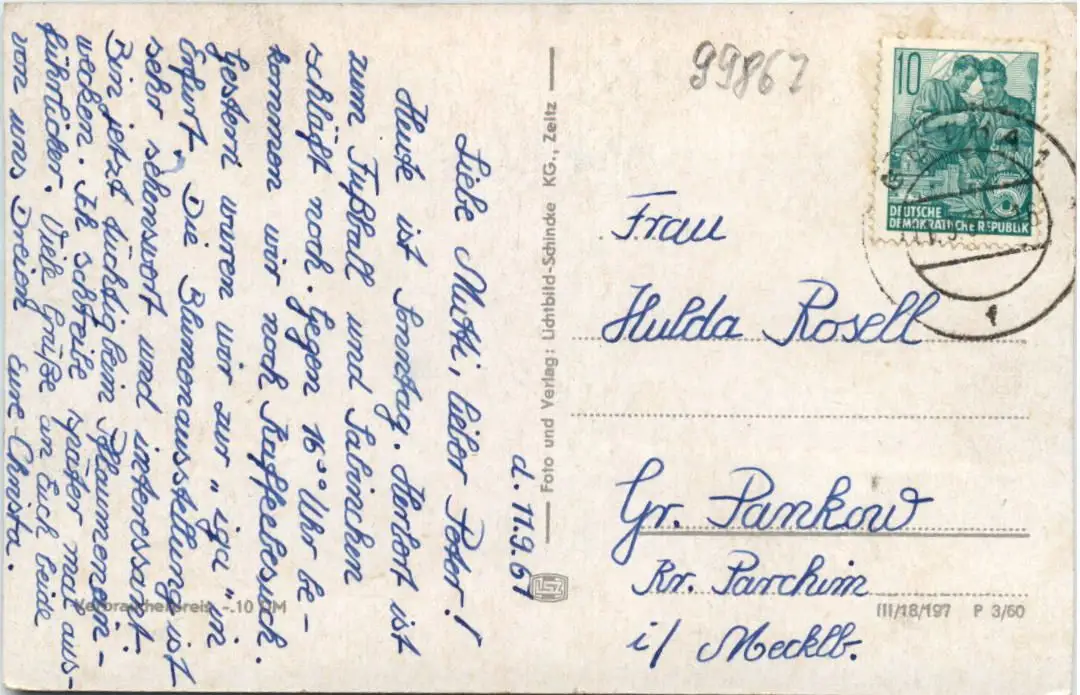 d. 11.9.61
Liebe Mutti, lieber Peter!
Heute ist Sonntag. Herbert ist
zum Fußball und Sabinchen
schläft noch. Gegen 16⁰⁰ Uhr be-
kommen wir noch Kaffeebesuch.
Gestern waren wir zur „iga“ in
Erfurt. Die Blumenausstellung ist
sehr sehenswert und interessant.
Bin jetzt tüchtig beim Pflaumenein-
wecken. Ich schreibe später mal aus-
führlicher. Viele Grüße an Euch beide
von uns Dreien Eure Christa.
Verbraucherpreis -.10 DM
Foto und Verlag: Lichtbild-Schincke KG., Zeitz
99867
10
DEUTSCHE
DEMOKRATISCHE REPUBLIK
Frau
Hulda Rosell
Gr. Pankow
Kr. Parchim
i/ Mecklb.
III/18/197 P 3/60